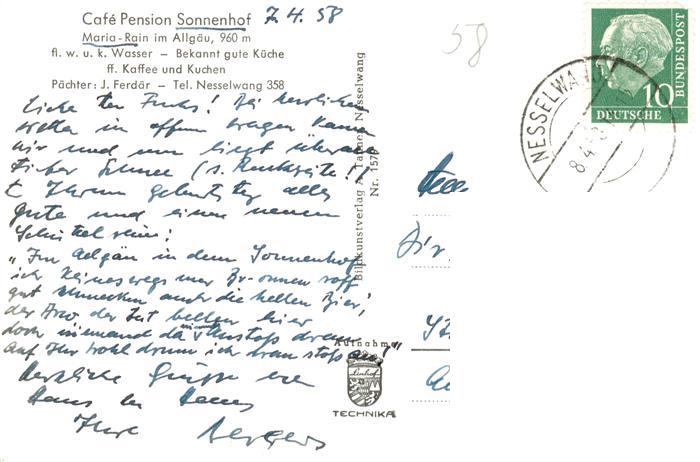 Café Pension Sonnenhof 7.4.58
Maria-Rain im Allgäu, 960 m
fl. w. u. k. Wasser – Bekannt gute Küche
ff. Kaffee und Kuchen
Pächter: J. Ferdär – Tel. Nesselwang 358
58
Herr Fuchs! Bei herrlichem
Wetter im offenen Wagen kamen
wir und nun liegt überall
tiefer Schnee (s. Rückseite!!)
Ihrem Geburtstag alles
Gute und einen neuen
Schüttelreim:
"Im Allgäu in dem Sonnenhof
ich keineswegs nur
gut schmecken auch die hellen Bier',
der der bellen hier
doch niemand da Anstoß dran
auf Ihr Wohl drum ich dran stoß an!"
Herzliche Grüsse von
Haus zu Haus
Ihre
Bildkunstverlag A. Nesselwang
Nr. 1576
Aufnahme
Linhof
TECHNIKA
NESSELWANG
8.4.58
10
DEUTSCHE
BUNDESPOST